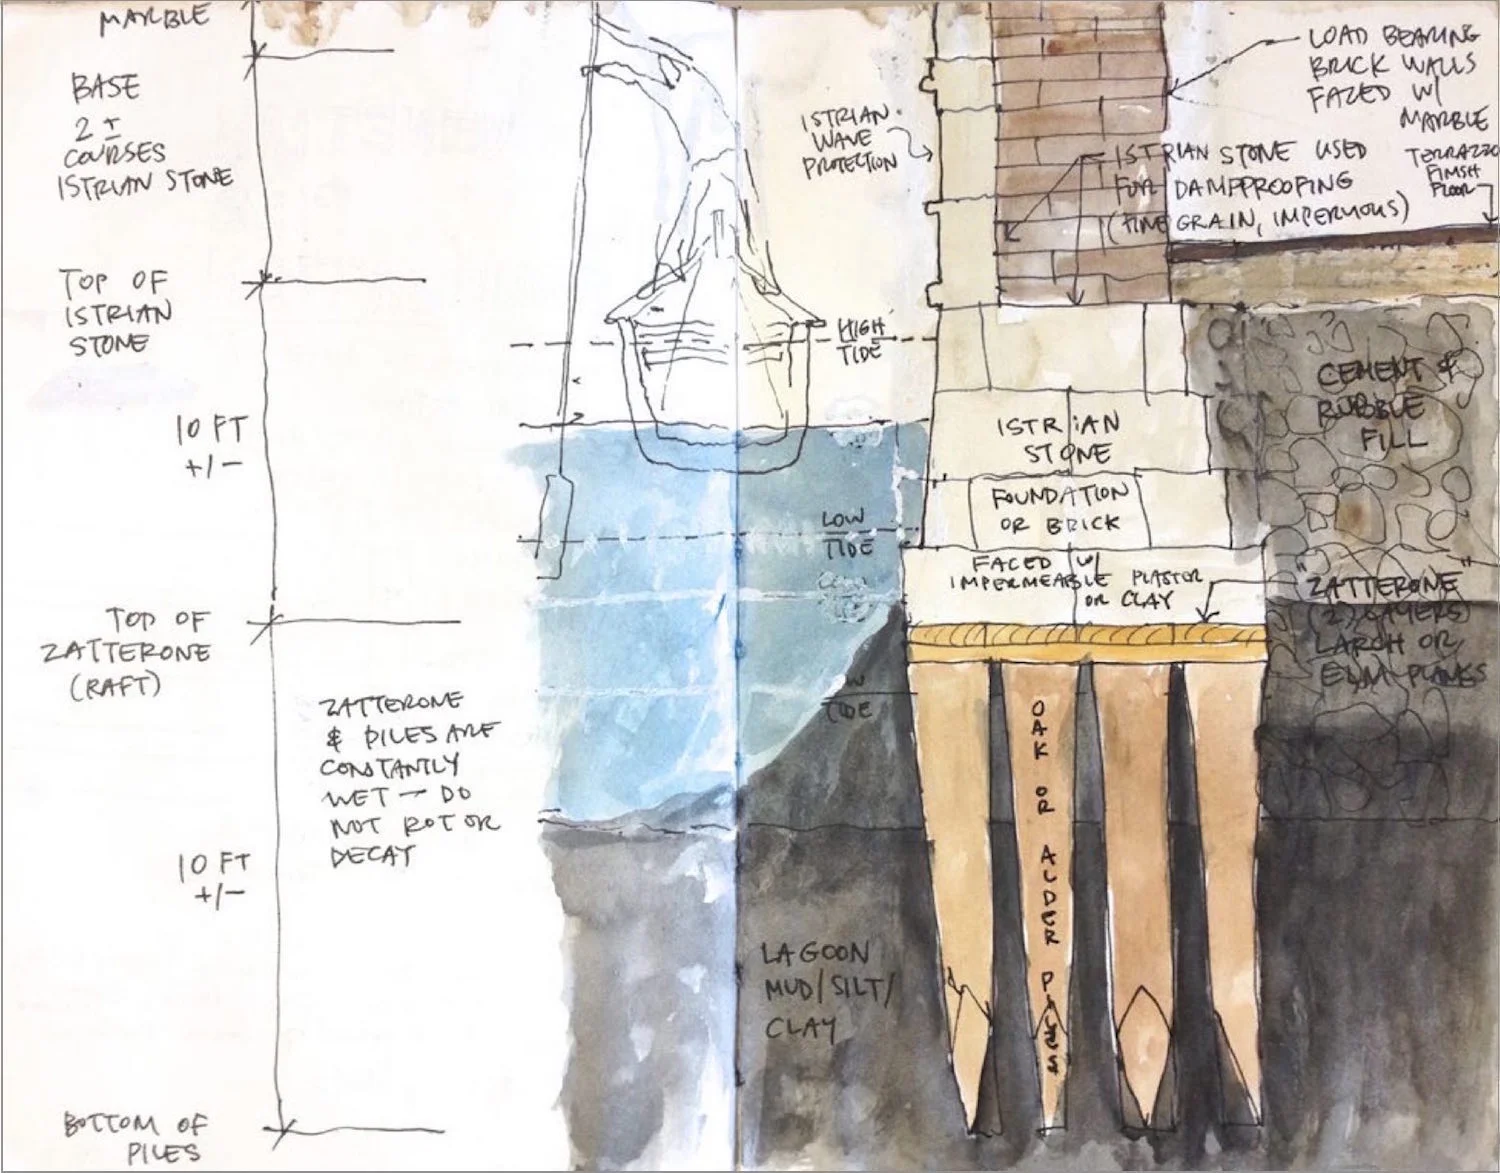 MARBLE
BASE
2 ±
COURSES
ISTRIAN STONE
TOP OF
ISTRIAN
STONE
10 FT
+/-
TOP OF
ZATTERONE
(RAFT)
ZATTERONE
& PILES ARE
CONSTANTLY
WET — DO
NOT ROT OR
DECAY
10 FT
+/-
BOTTOM OF
PILES
HIGH
TIDE
LOW
TIDE
TIDE
LAGOON
MUD/SILT/
CLAY
ISTRIAN
WAVE
PROTECTION
LOAD BEARING
BRICK WALLS
FACED W/
MARBLE
ISTRIAN STONE USED
FOR DAMPPROOFING
(FINE GRAIN, IMPERVIOUS)
TERRAZZO
FINISH
FLOOR
CEMENT &
RUBBLE
FILL
ISTRIAN
STONE
FOUNDATION
OR BRICK
FACED W/
IMPERMEABLE PLASTER
OR CLAY
ZATTERONE
(2) LAYERS
LARCH OR
ELM PLANKS
OAK OR ALDER PILES